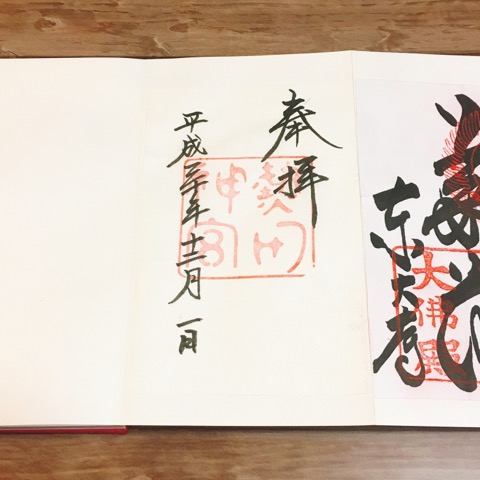 東大寺
大佛殿
奉拝
熱田
神宮
平成三十年十二月一日